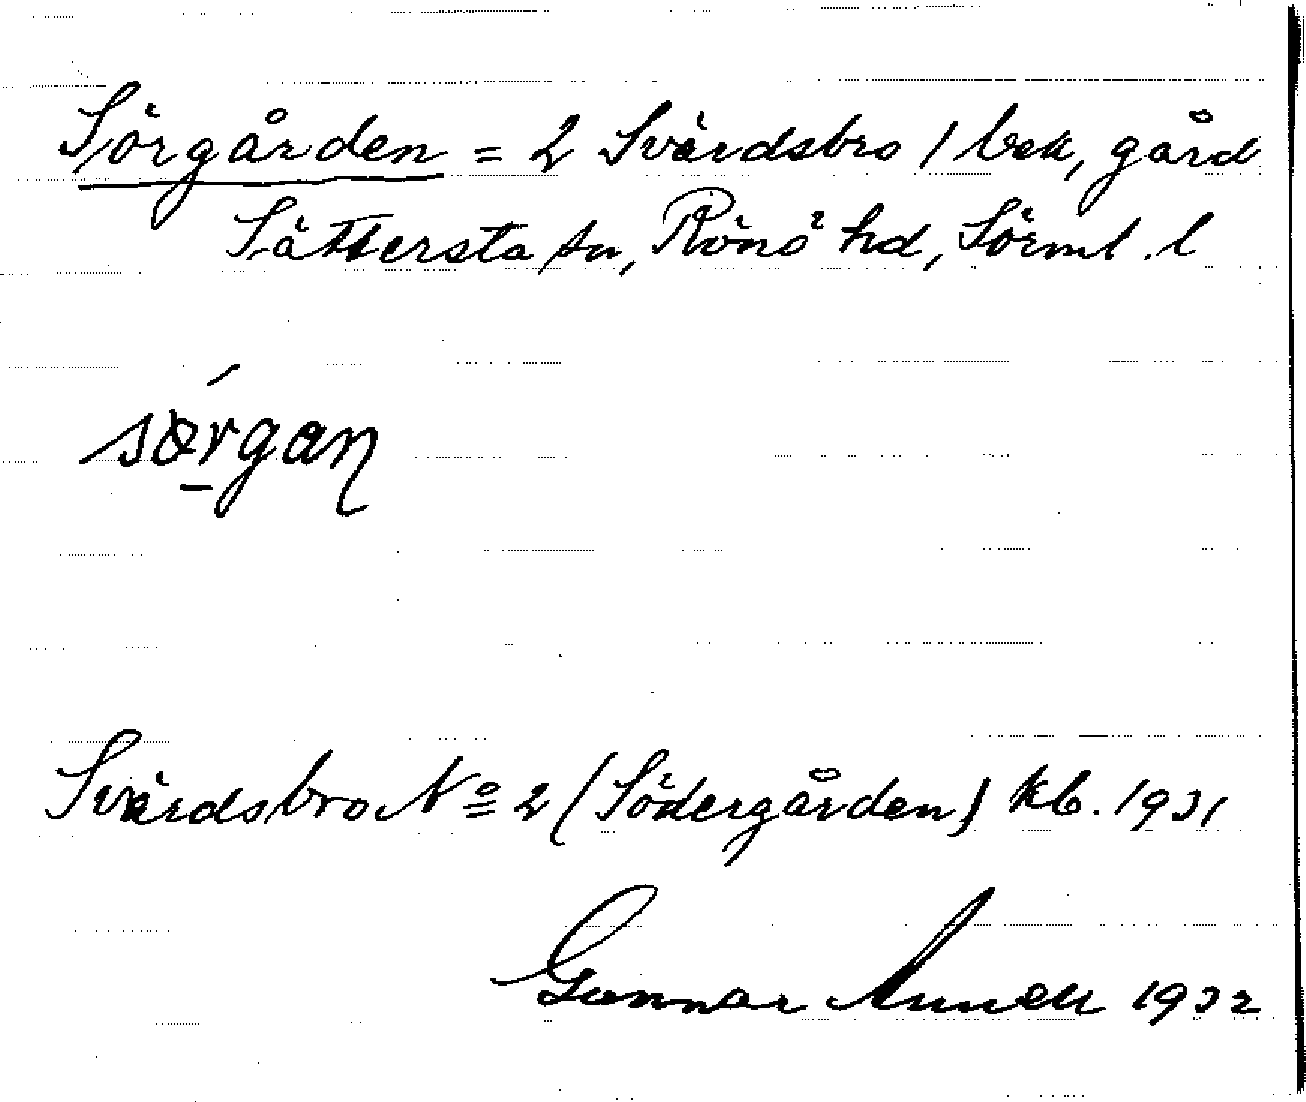 Sörgården = 2 Svärdsbro / bek, gård
Sättersta sn, Rönö hd, Sörml. l
sø̱rgan
Svärdsbro No 2 (Södergården) kb. 1931
Gunnar Annell 1932